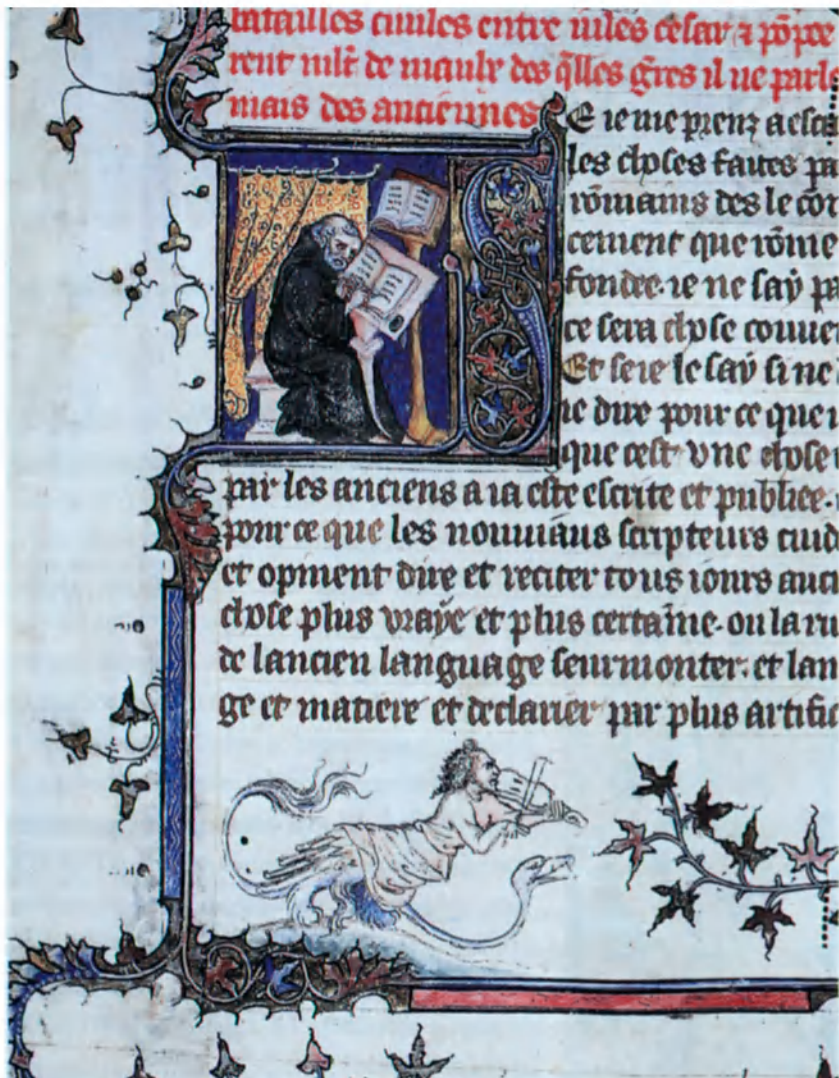 batailles ciuiles entre iules cesar ⁊ põpee
rent mlt de maulx des qlles gres il ne parle
mais des anciennes
SE ie me prenz a escr
les choses faites pa
rõmains des le cõm
cement que rõme
fondee. ie ne say p
ce sera chose conue
Et se ie le say si ne
ie dire pour ce que
que cest vne chose
par les anciens a ia este escrite et publiee.
pour ce que les nouuiaus scripteurs cuid
et opinent dire et reciter tous iours auc
chose plus vraye et plus certaine. ou la ru
de lancien language seurmonter. et lan
ge et matiere et declarier par plus artifi